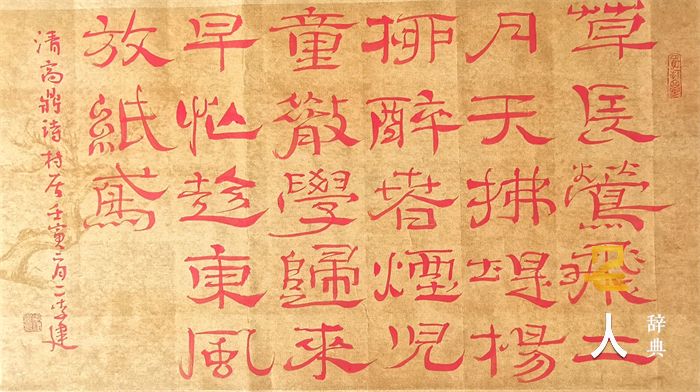 草長鶯飛二
月天拂堤楊
柳醉春煙兒
童散學歸來
早忙趁東風
放紙鳶
清高鼎詩村居壬寅二月李建
人
辞典